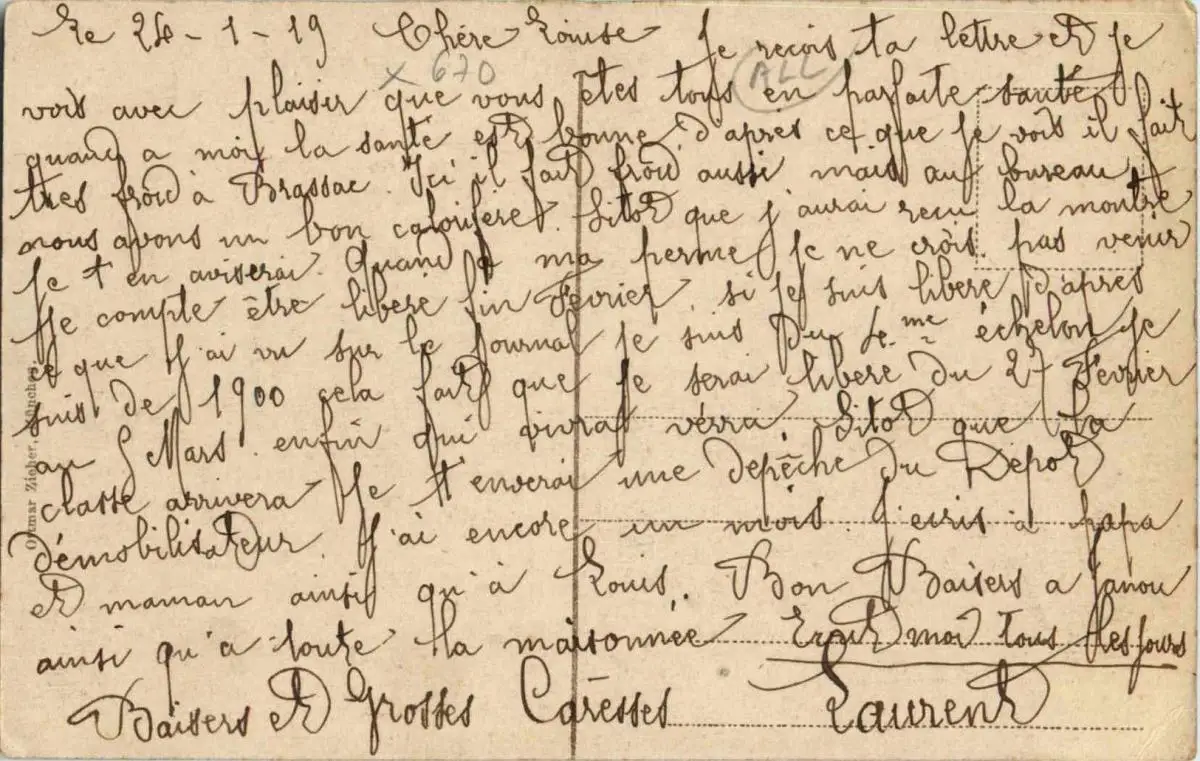 Le 24 - 1 - 19 Chère Louise Je reçois ta lettre et je
x 670
ALL
vois avec plaisir que vous êtes tous en parfaite santé
quand a moi la santé est bonne, d'après ce que je vois il fait
tres froid à Brassac. Ici il fait froid aussi mais au bureau
nous avons un bon calorifere. Sitot que j'aurai recu la montre
je t'en aviserai. Quand à ma perme je ne crois pas venir
Je compte être libere fin Fevrier. si je suis libere d'après
ce que j'ai vu sur le journal je suis du 4me échelon je
suis de 1900 cela fait que je serai libere du 27 Fevrier
au 5 Mars. enfin qui vivra verra Sitot que la
classe arrivera je t'enverai une depêche du Depot
démobilisateur. J'ai encore un mois. J'ecris à papa
et maman ainsi qu'à Louis. Bon Baisers a Janou
ainsi qu'a toute la maisonnée Ecrit moi tous les jours
Baisers et Grosses Caresses Laurent
Ottmar Zieher, München